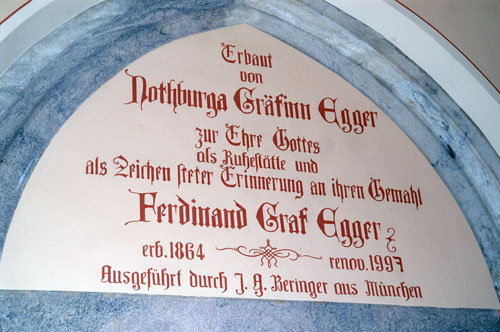 Erbaut
von
Nothburga Gräfinn Egger
zur Ehre Gottes
als Ruheſtätte und
als Zeichen ſteter Erinnerung an ihren Gemahl
Ferdinand Graf Egger
erb. 1864 renov. 1997
Ausgeführt durch J. G. Beringer aus München